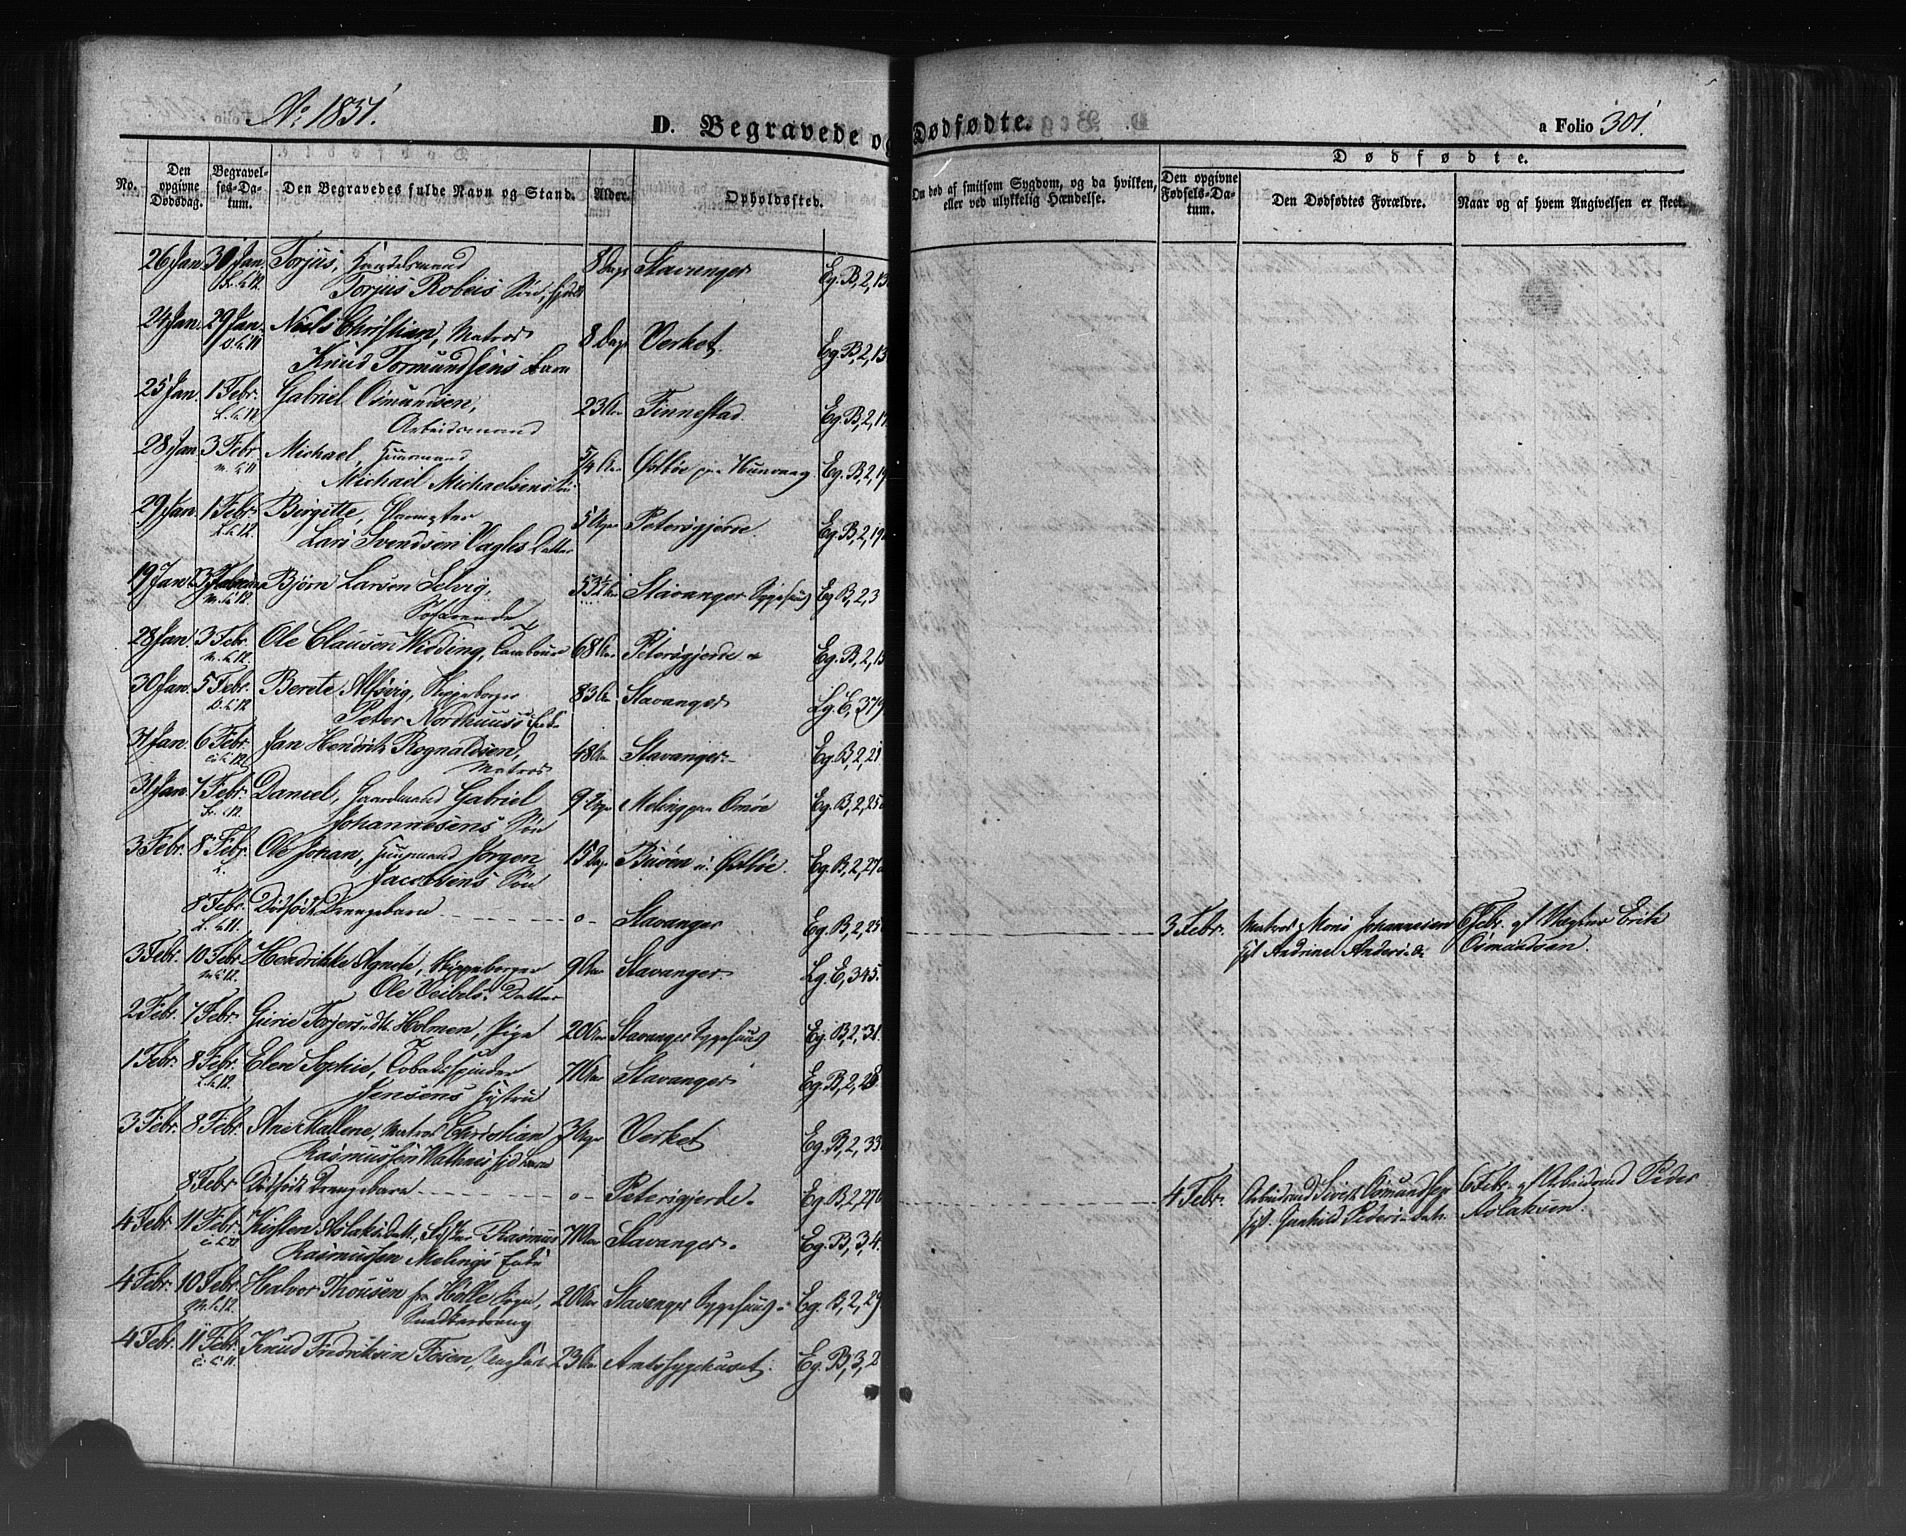 No 1851.
D. Begravede og Dødfødte.
a Folio 301.
No.
Den opgivne Dødsdag.
Begravel-ses-Da-tum.
Den Begravedes fulde Navn og Stand.
Alder.
Opholdssted.
Om død af smitsom Sygdom, og da hvilken, eller ved ulykkelig Hændelse.
Dødfødte.
Den opgivne Fødsels-Da-tum.
Den Dødfødtes Forældre.
Naar og af hvem Angivelsen er skeet.
26 Jan. 30 Jan. Torjus, Handelsmand 8 Dage Stavanger Eg. B, 2, 13
Torjus Robeis Søn
24 Jan. 29 Jan. Niels Christian, Matros 8 Dage Verket Eg. B, 2, 13
Knud Tormundsens Barn
25 Jan. 1 Febr. Gabriel Osmundsen, 23 Aar Finnestad Eg. B, 2, 1
Arbeidsmand
28 Jan. 3 Febr. Michael, Huusmand 5/4 Aar Østbøe paa Hunvaag Eg. B, 2, 19
Michael Michaelsens Søn
29 Jan. 1 Febr. Birgitte, 5 Uger Petersgjerde Eg. B, 2, 19
Lars Svendsen Vagles Datter
19 Jan. 3 Februar Bjørn Larsen Selvig, 53½ Aar Stavanger Sygehuus Eg. B, 2, 3
28 Jan. 3 Febr. Ole Clausen Widding, Tambour 68 Aar Petersgjerde Eg. B, 2, 13
30 Jan. 5 Febr. Berete Alfsvig, Skippeborger 83 Aar Stavanger Lg. E, 379
Peter Nordhuus's Enke
31 Jan. 6 Febr. Jan Hendrik Rognaldsen, 48 Aar Stavanger Eg. B, 2, 21
Matros
31 Jan. 7 Febr. Daniel, Gaardmand Gabriel 9 Uger Meling paa Omøe Eg. B, 2, 25
Johannesens Søn
3 Febr. 8 Febr. Ole Johan, Huusmand Jørgen 15 Dage Buøen u. Østbøe. Eg. B, 2, 27
Jacobsens Søn
8 Febr. Dødfødt Drengebarn o Stavanger Eg. B, 2, 25 3 Febr. Matros Mons Johannesen 6 Febr. af Vægter Erik
Andrine Andersd. Osmundsen.
3 Febr. 10 Febr. Hendrikke Agnete, Skippeborger 9 Aar Stavanger Lg. E, 345.
Ole Veibels Datter
2 Febr. 7 Febr. Gurie Torjersdtr. Holmen, Pige 20 Aar Stavanger Sygehuus Eg. B, 2, 31.
1 Febr. 8 Febr. Elen Sophie, Tobaksspinder 71 Aar Stavanger Eg. B, 2, 28
Jensens Hustru
3 Febr. 8 Febr. Ane Mallene, Matros Christian 3 Uger Verket Eg. B, 2, 33
Rasmussen Barn
8 Febr. Dødfødt Drengebarn o Petersgjerde Eg. B, 2, 27 4 Febr. Arbeidsmand Sivert Osmundsen 6 Febr. af Arbeidsmand Peder
Gunhild Pedersdatr. Aslaksen.
4 Febr. 11 Febr. Kirsten Aslaksdatt., Rasmus 71 Aar Stavanger Eg. B, 3, 4.
Rasmussen Melings Enke
4 Febr. 10 Febr. Halvor Thorsen fra Holle Sogn, 20 Aar Stavanger Sygehuus Eg. B, 2, 29
Snedkerdreng
4 Febr. 11 Febr. Knud Fredriksen Fosen, 23 Aar Amtssygehuset. Eg. B, 3, 2